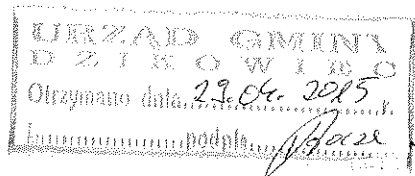 URZĄD GMINY
DZIKOWIEC
Otrzymano dnia 29.04. 2015 r.
L..............podpis